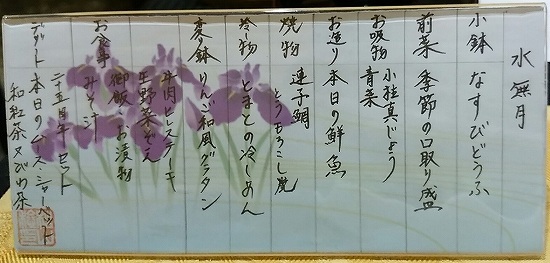 水無月
小鉢 なすびどうふ
前菜 季節の口取り盛
お吸物 小柱真じょう
青菜
お造り 本日の鮮魚
焼物 連子鯛
とうもろこし焼
冷し物 とまとの冷しめん
変り鉢 りんご和風グラタン
牛肉ヒレステーキ
生野菜そえ
お食事 御飯 お漬物
みそ汁
デザート 本日のムース シャーベット
和紅茶又びわ茶